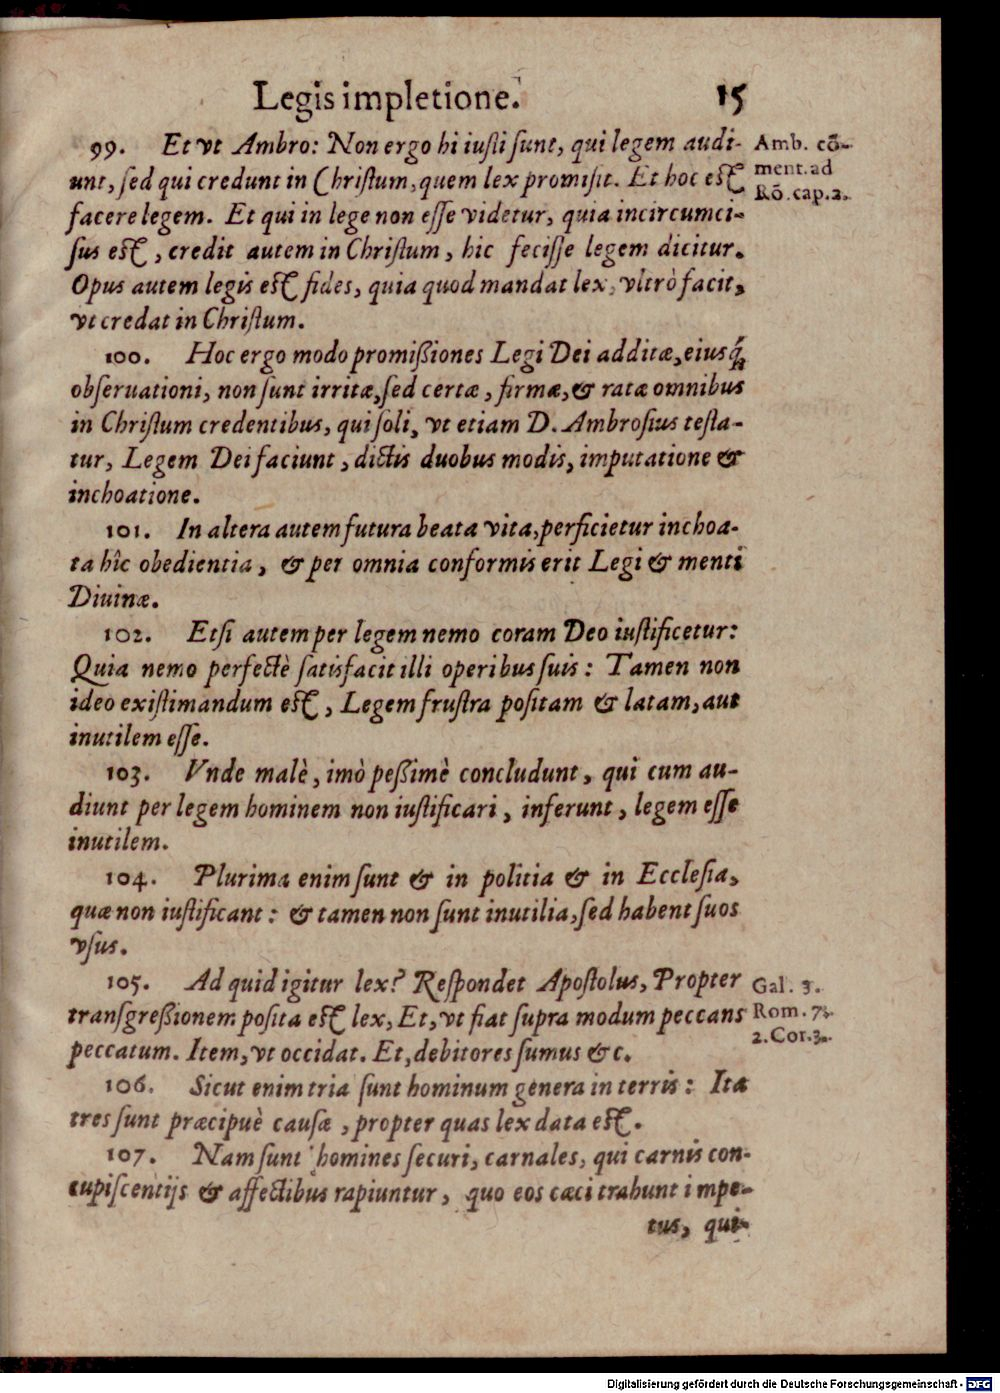 Legis impletione. 15
99. Et vt Ambro: Non ergo hi iusti sunt, qui legem audi-
unt, sed qui credunt in Christum, quem lex promisit. Et hoc est
facere legem. Et qui in lege non esse videtur, quia incircumci-
sus est, credit autem in Christum, hic fecisse legem dicitur.
Opus autem legis est fides, quia quod mandat lex, vltrò facit,
vt credat in Christum.
Amb. cō-
ment. ad
Rō. cap. 2.
100. Hoc ergo modo promißiones Legi Dei additæ, eiusq́;
obseruationi, non sunt irritæ, sed certæ, firmæ, & ratæ omnibus
in Christum credentibus, qui soli, vt etiam D. Ambrosius testa-
tur, Legem Dei faciunt, dictis duobus modis, imputatione &
inchoatione.
101. In altera autem futura beata vita, perficietur inchoa-
ta hîc obedientia, & per omnia conformis erit Legi & menti
Diuinæ.
102. Etsi autem per legem nemo coram Deo iustificetur:
Quia nemo perfectè satisfacit illi operibus suis: Tamen non
ideo existimandum est, Legem frustra positam & latam, aut
inutilem esse.
103. Vnde malè, imò peßimè concludunt, qui cum au-
diunt per legem hominem non iustificari, inferunt, legem esse
inutilem.
104. Plurima enim sunt & in politia & in Ecclesia,
quæ non iustificant: & tamen non sunt inutilia, sed habent suos
vsus.
105. Ad quid igitur lex? Respondet Apostolus, Propter
transgreßionem posita est lex, Et, vt fiat supra modum peccans
peccatum. Item, vt occidat. Et, debitores sumus &c.
Gal. 3.
Rom. 7.
2. Cor. 3.
106. Sicut enim tria sunt hominum genera in terris: Ita
tres sunt præcipuè causæ, propter quas lex data est.
107. Nam sunt homines securi, carnales, qui carnis con-
cupiscentijs & affectibus rapiuntur, quo eos cæci trahunt impe-
tus, qui-
Digitalisierung gefördert durch die Deutsche Forschungsgemeinschaft - DFG